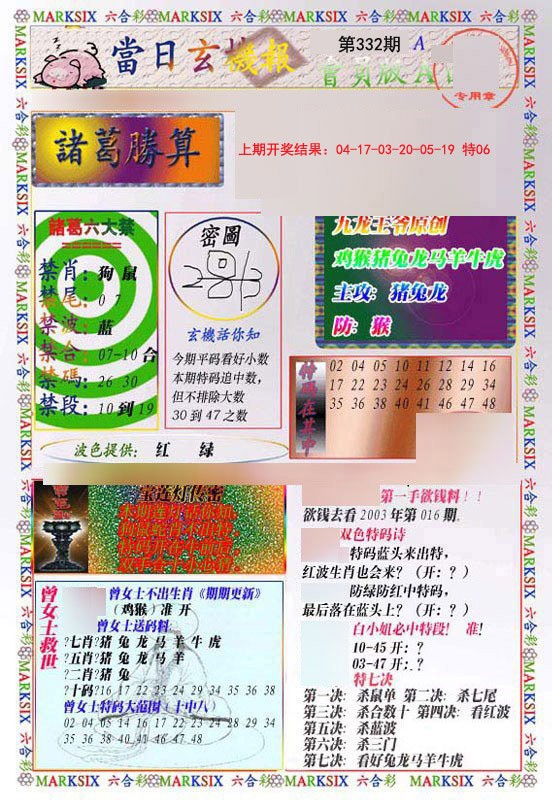 MARKSIX 六合彩 MARKSIX 六合彩 MARKSIX 六合彩 MARKSIX 六合彩
當日玄機報
第332期 A
會員版A
专用章
諸葛勝算
上期开奖结果：04-17-03-20-05-19 特06
諸葛六大禁
禁肖：狗 鼠
禁尾：0 7
禁波：蓝
禁合：07-10 合
禁碼：26 30
禁段：10 到 19
密圖
玄機話你知
今期平码看好小数
本期特码追中数，
但不排除大数
30 到 47 之数
九龙王爷原创
鸡猴猪兔龙马羊牛虎
主攻：猪兔龙
防：猴
特碼在其中
02 04 05 10 11 12 14 16
17 22 23 24 26 28 29 34
35 36 38 40 41 46 47 48
波色提供： 红 绿
宝莲灯传密
曾女士救世
曾女士不出生肖《期期更新》
（鸡猴）准 开
曾女士送码料
?七肖?猪 兔 龙 马 羊 牛 虎
?五肖?猪 兔 龙 马 羊
?二肖?猪 兔
?十码?16 17 22 23 24 29 34 35 36 38
曾女士特码大范围（十中八）
02 04 05 14 16 17 22 23 24 28 29 34
35 36 38 40 41 46 47 48
第一手欲钱料！！
欲钱去看 2003 年第 016 期.
双色特码诗
特码蓝头来出特，
红波生肖也会来？（开：？）
防绿防红中特码，
最后落在蓝头上？（开：？）
白小姐必中特段！ 准！
10-45 开：？
03-47 开：？
特七决
第一决：杀鼠单 第二决：杀七尾
第三决：杀合数十 第四决：看红波
第五决：杀蓝波
第六决：杀三门
第七决：看好兔龙马羊牛虎
MARKSIX 六合彩 MARKSIX 六合彩 MARKSIX 六合彩 MARKSIX 六合彩